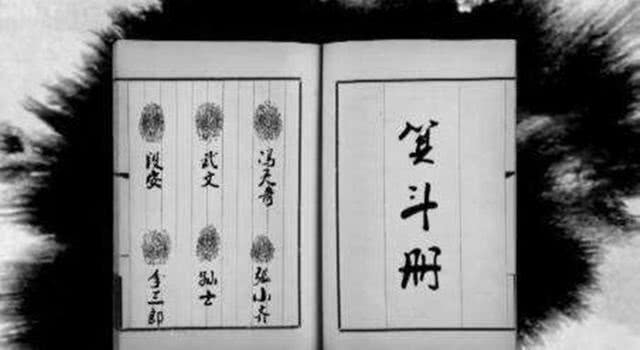 箕斗册
冯天奇
张小齐
武文
孙士
段安
李三郎